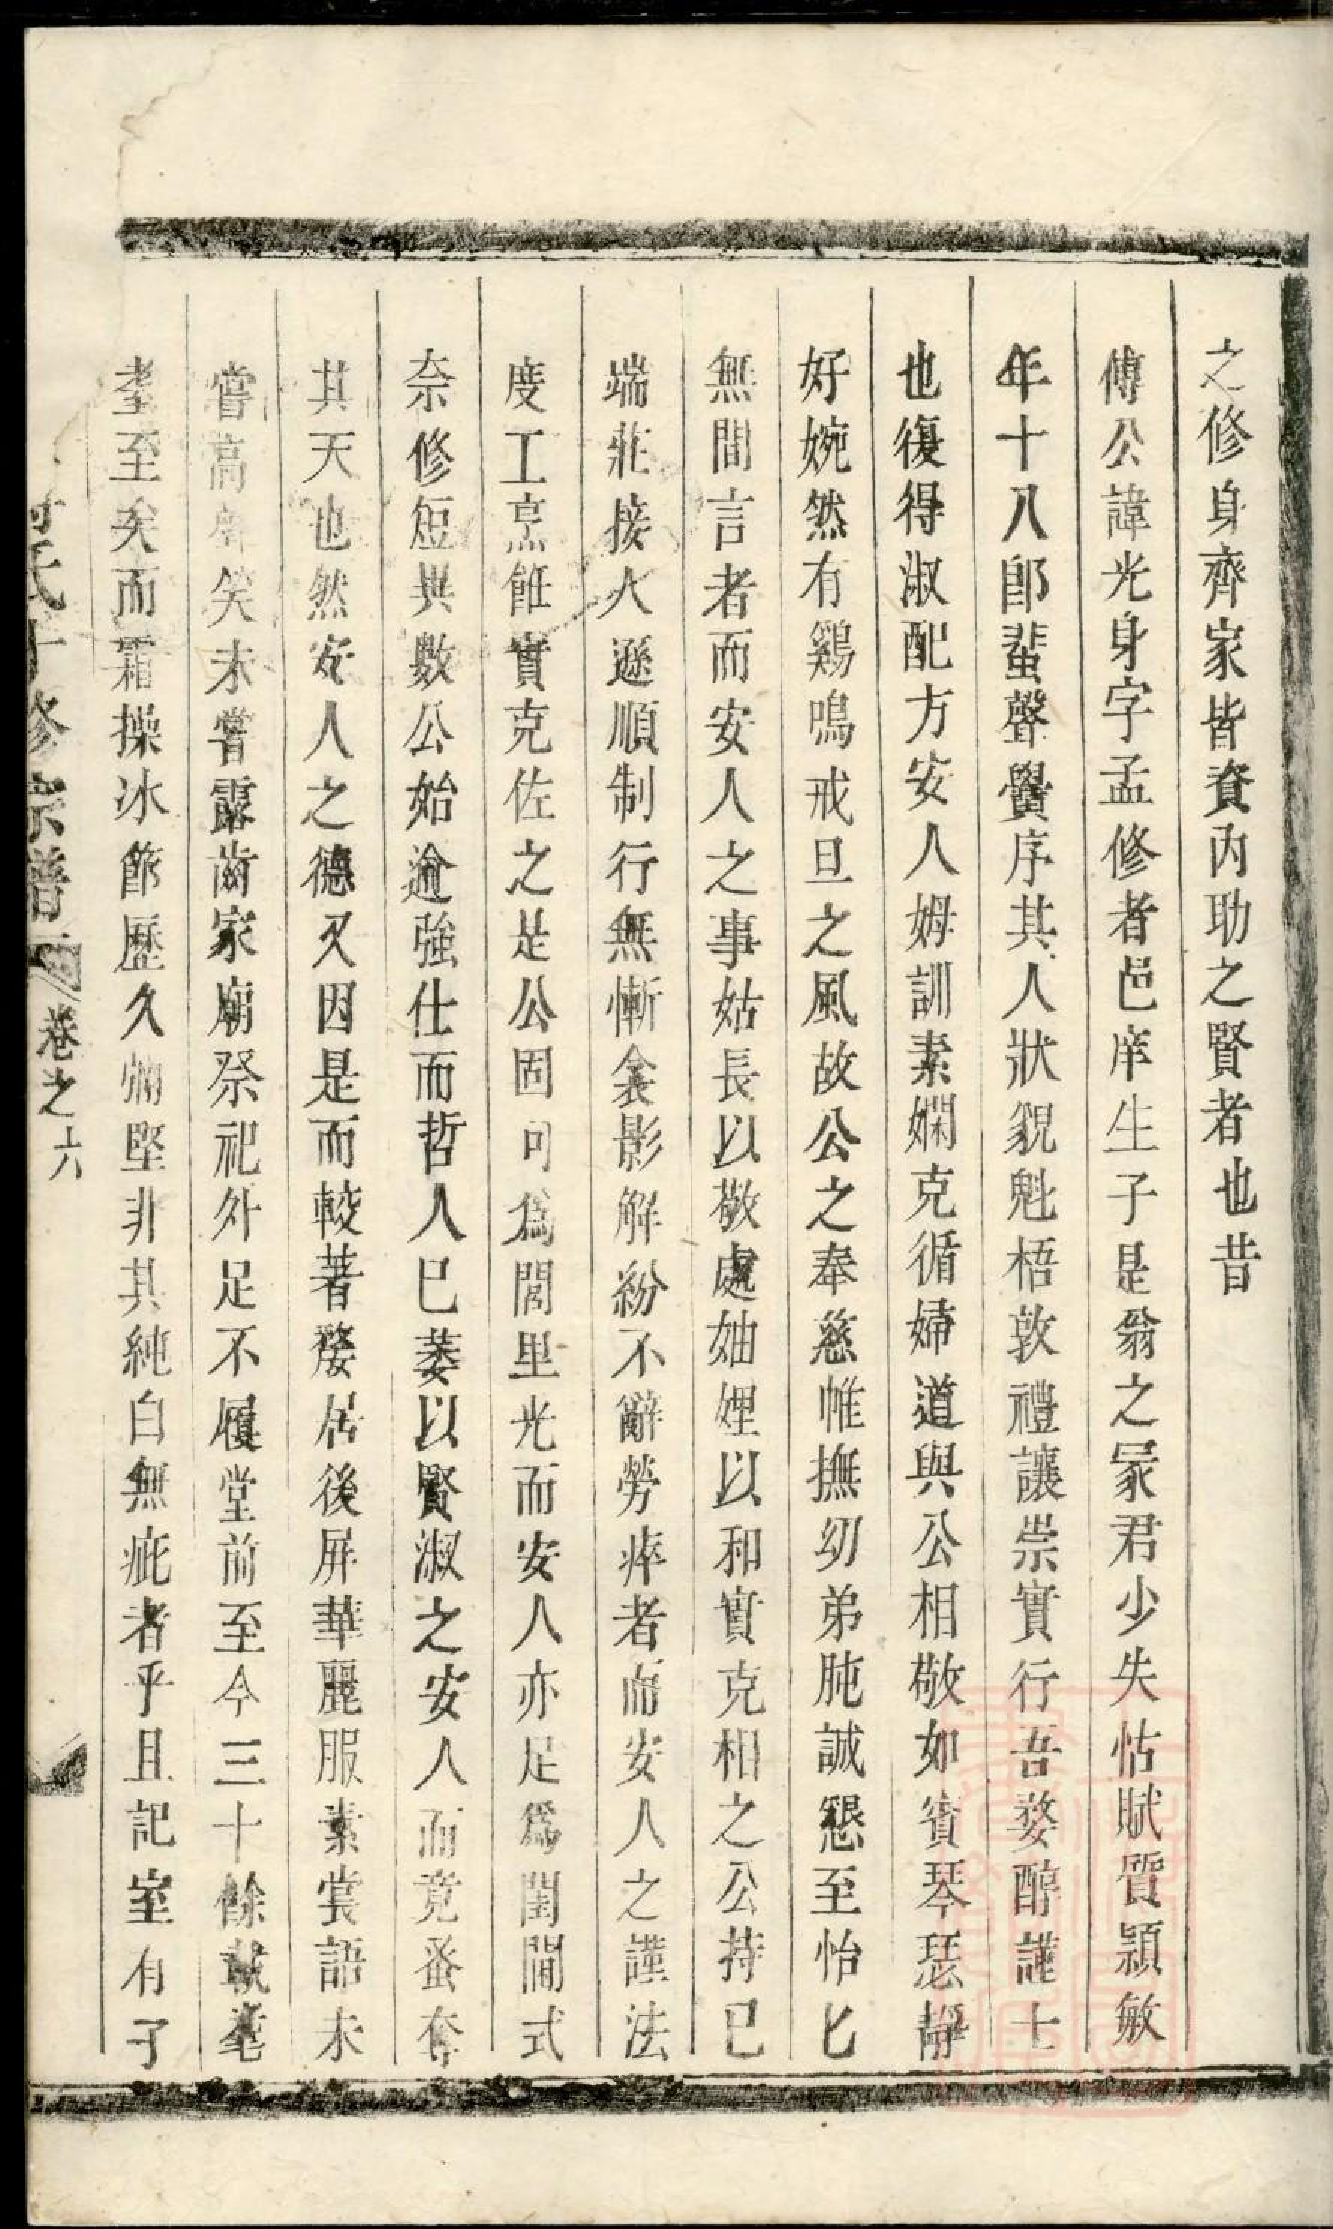 之修身齊家皆資內助之賢者也昔
傅公諱光身字孟修者邑庠生子是翁之冢君少失怙賦質穎敏
年十八郎蜚聲黌序其人狀貌魁梧敦禮讓崇實行吾婺醇謹士
也復得淑配方安人姆訓素嫻克循婦道與公相敬如賓琴瑟靜
好婉然有鷄鳴戒旦之風故公之奉慈帷撫幼弟肫誠懇至怡匕
無間言者而安人之事姑長以敬處妯娌以和實克相之公持已
端莊接人遜順制行無慚衾影解紛不辭勞瘁者而安人之謹法
度工烹飪實克佐之是公固可爲閭里光而安人亦足爲閨閫式
奈修短異數公始逾強仕而哲人已萎以賢淑之安人而竟蚤奪
其天也然安人之德又因是而較著嫠居後屏華麗服素裳語未
嘗高聲笑未嘗露齒家廟祭祀外足不履堂前至今三十餘載耄
耋至矣而霜操冰節歷久彌堅非其純白無疵者乎且記室有子
氏十修宗譜 卷之六